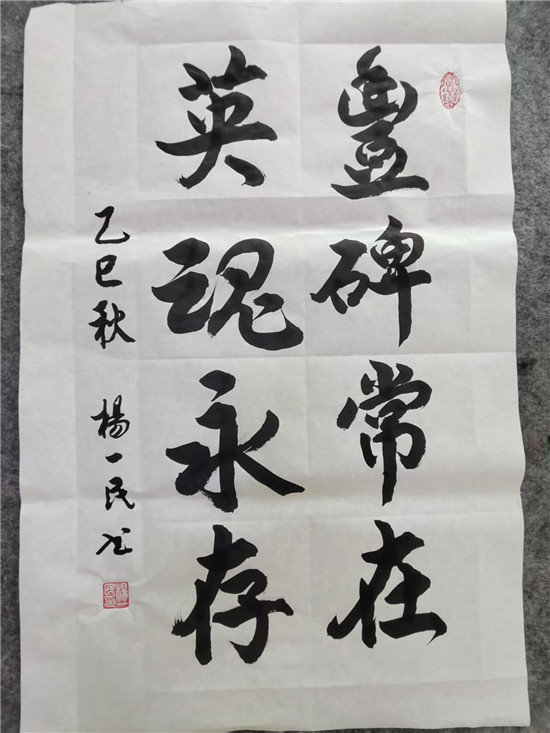 豊碑常在
英魂永存
乙巳秋 楊一民书